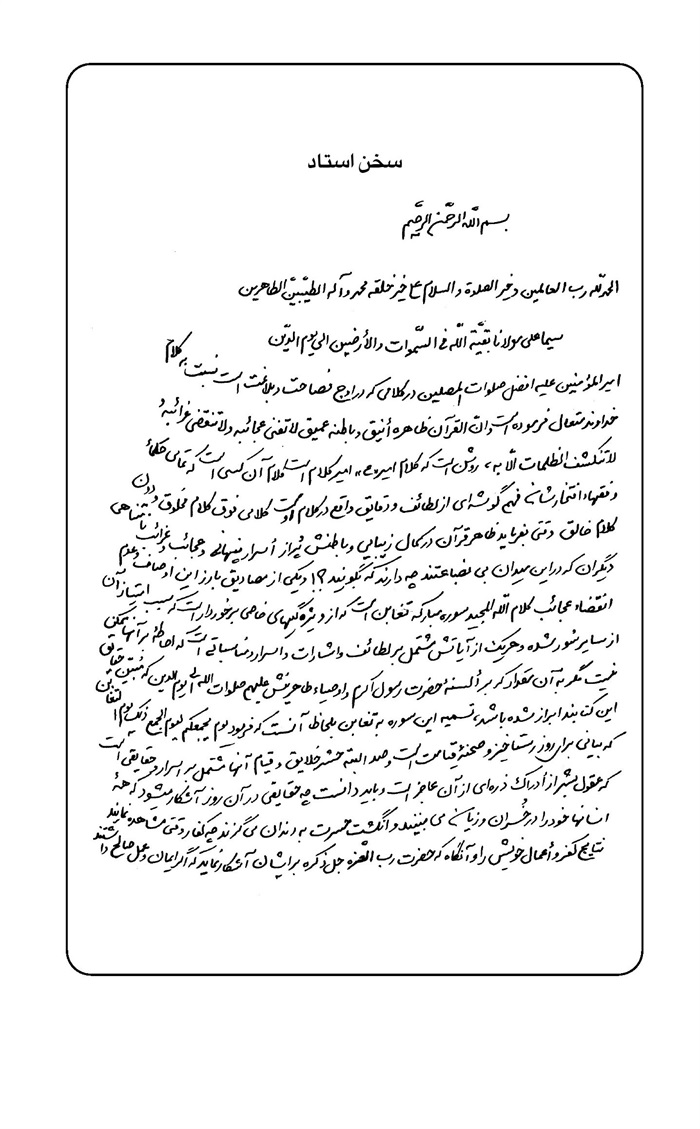 سخن استاد
بسم اللّه الرّحمن الرّحیم
الحمد للّه رب العالمین و خیر الصلوة و السلام علی خیر خلقه محمد و آله الطیّبین الطاهرین
سیما علی مولانا بقیّة اللّه فی السّموات و الأرضین الی یوم الدّین
امیرالمؤمنین علیه افضل صلوات المصلین در کلامی که در اوج فصاحت و بلاغت است نسبت به کلام
خداوند متعال فرموده است وان القرآن ظاهره أنیق و باطنه عمیق لا تفنی عجائبه و لا تنقضی غرائبه و
لا تنکشف الظلمات الّا به، روشن است که کلام امیر «ع» امیر کلام است کلام آن کسی است که تمامی حکماء
و فقهاء افتخارشان فهم گوشه‌ای از لطائف و دقایق واقع در کلام اوست کلامی فوق کلام مخلوق و دون
کلام خالق وقتی بفرماید ظاهر قرآن در کمال زیبایی و باطنش پُر از أسرار پنهانی و عجائب و غرائب نامتناهی
دیگران که در این میدان بی بضاعتند چه دارند که بگویند ؟! و یکی از مصادیق بارز این اوصاف و عدم
انقضاء عجائب کلام اللّه المجید سوره مبارکه تغابن است که از ویژه‌گیهای خاصی برخوردار است که سبب امتیاز آن
از سایر سُوَر شده و هریک از آیاتش مشتمل بر لطائف و اشارات و اسرار و مناسباتی است که احاطهٔ بر آنها ممکن
نیست مگر به آن مقدار که بر ألسنهٔ حضرت رسول اکرم و اوصیاء طاهرینش علیهم صلوات اللّه الی یوم الدین که مُبَیّن حقایق
این کتابند ابراز شده باشد، تسمیه این سوره به تغابن بلحاظ آنست که فرمود یوم یجمعکم لیوم الجمع ذلک یوم التغابن
که بیانی برای روز رستاخیز و صحنهٔ قیامت است و صد البته حشر خلایق و قیام آنها مشتمل بر اسرار و حقایقی است
که عقول بشر از أدراک ذره‌ای از آن عاجز است و باید دانست چه حقایقی در آن روز آشکار میشود که همهٔ
انسانها خود را در خُسران و زیان می بینند و انگشت حسرت به دندان می گزند چه کفار وقتی مشاهده نمایند
نتایج کفر و أعمال خویش را و آنگاه که حضرت رب العزه جل ذکره بر ایشان آشکار نماید که اگر ایمان و عمل صالح داشتند